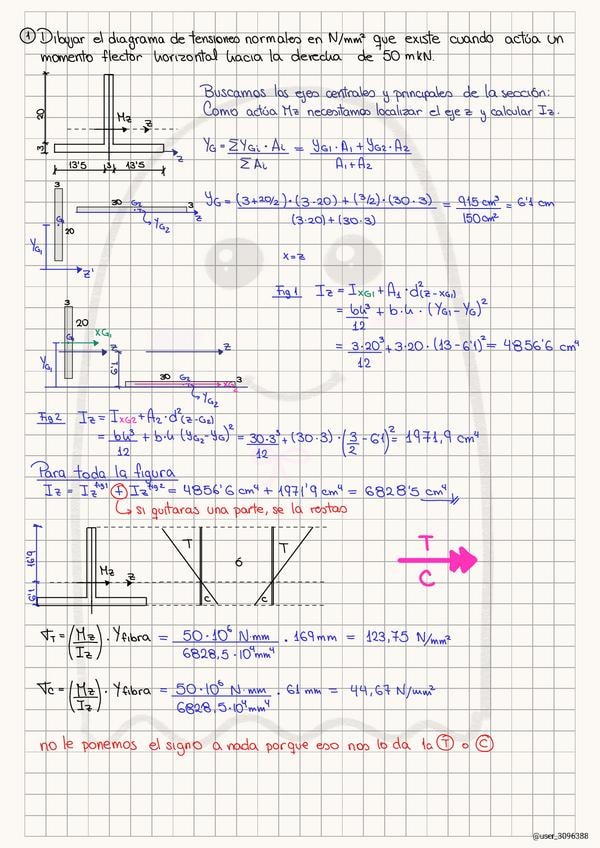 ① Dibujar el diagrama de tensiones normales en N/mm² que existe cuando actúa un
momento flector horizontal hacia la derecha de 50 mkN.
Buscamos los ejes centrales y principales de la sección:
Como actúa Mz necesitamos localizar el eje z y calcular Iz.
20
3
Mz
z
z
13'5 3 13'5
YG = ΣYGi·Ai / ΣAi = (YG1·A1 + YG2·A2) / (A1+A2)
3
G1
20
YG1
z'
30 G2 3
z
YG2
YG = ((3+20/2)·(3·20) + (3/2)·(30·3)) / ((3·20)+(30·3)) = 915 cm³ / 150 cm² = 6'1 cm
x=z
Fig 1 Iz = IXG1 + A1·d²(z-XG1)
= bh³/12 + b·h·(YG1-YG)²
= 3·20³/12 + 3·20·(13-6'1)² = 4856'6 cm⁴
3
20
G1
XG1
YG1
z
z
6'1
30 G2 XG2 3
YG2
Fig 2 Iz = IXG2 + A2·d²(z-G2)
= bh³/12 + b·h (YG2-YG)² = 30·3³/12 + (30·3)·(3/2 - 6'1)² = 1971,9 cm⁴
Para toda la figura
Iz = Iz fig1 ⊕ Iz fig2 = 4856'6 cm⁴ + 1971'9 cm⁴ = 6828'5 cm⁴
↳ si quitaras una parte, se la restas
16'9
6'1
Mz
z
T
T
ó
C
C
T
C
σT = (Mz/Iz)·Yfibra = 50·10⁶ N·mm / 6828,5·10⁴ mm⁴ · 169 mm = 123,75 N/mm²
σC = (Mz/Iz)·Yfibra = 50·10⁶ N·mm / 6828,5·10⁴ mm⁴ · 61 mm = 44,67 N/mm²
no le ponemos el signo a nada porque eso nos lo da la Ⓣ o Ⓒ
@user_3096388